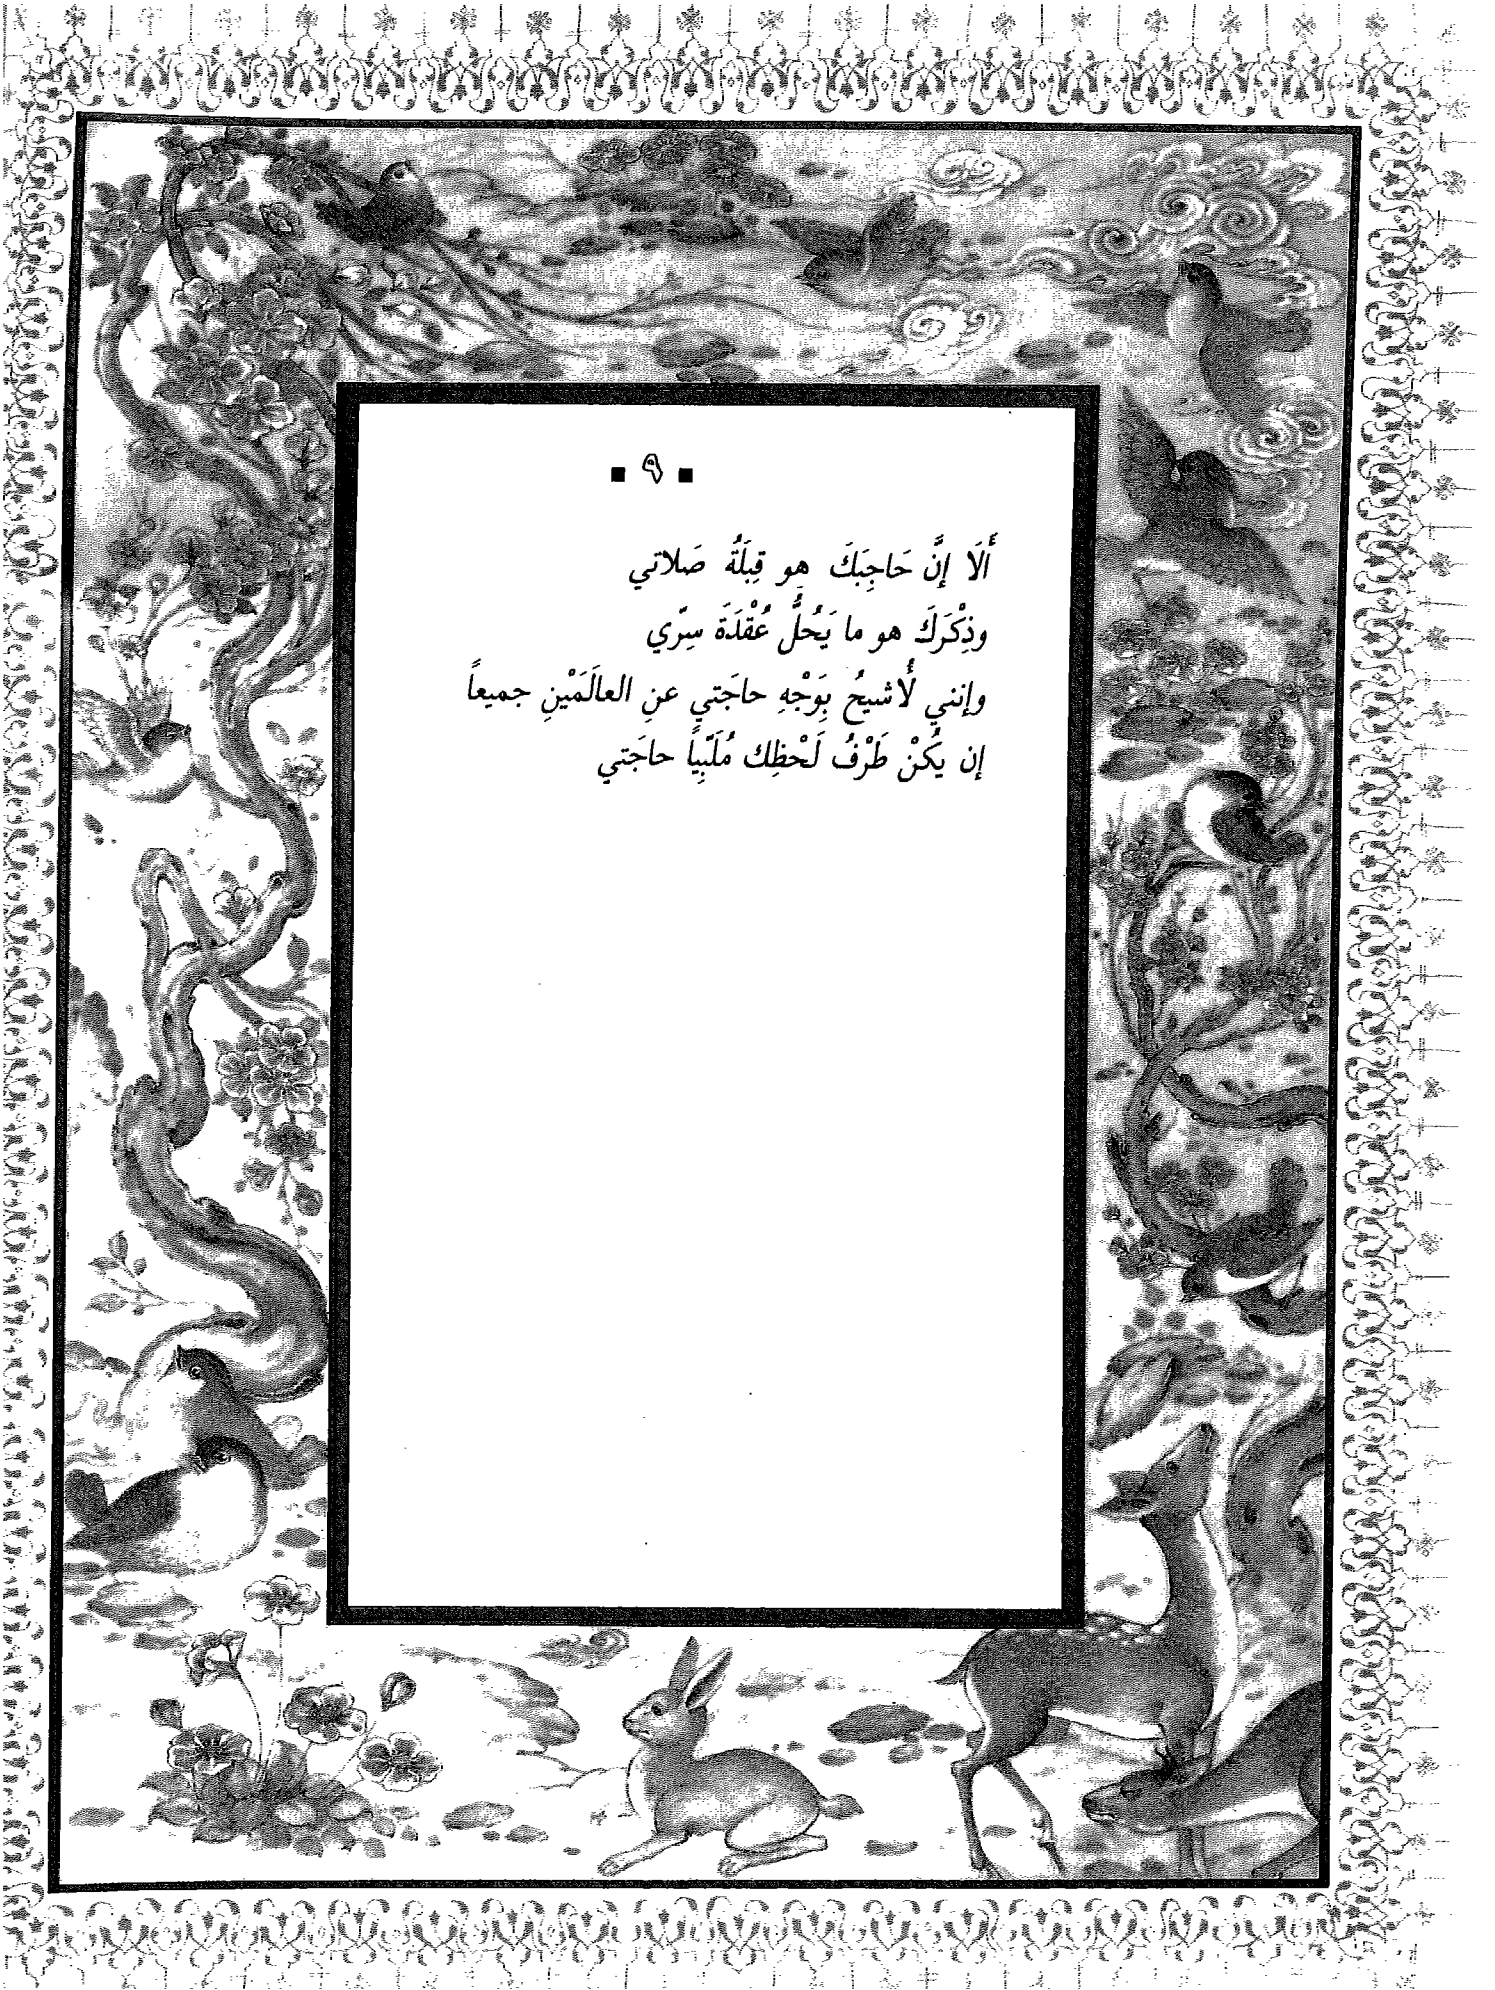 ▪ ٩ ▪
أَلَا إنَّ حَاجِبَكَ هو قِبلَةُ صَلاتي
وذِكْرَكَ هو ما يَحُلُّ عُقْدَةَ سِرّي
وإنني لَأُشيحُ بِوَجْهِ حاجَتي عنِ العالَمَيْنِ جميعاً
إن يكُنْ طَرْفُ لَحْظِك مُلَبِّياً حاجَتي